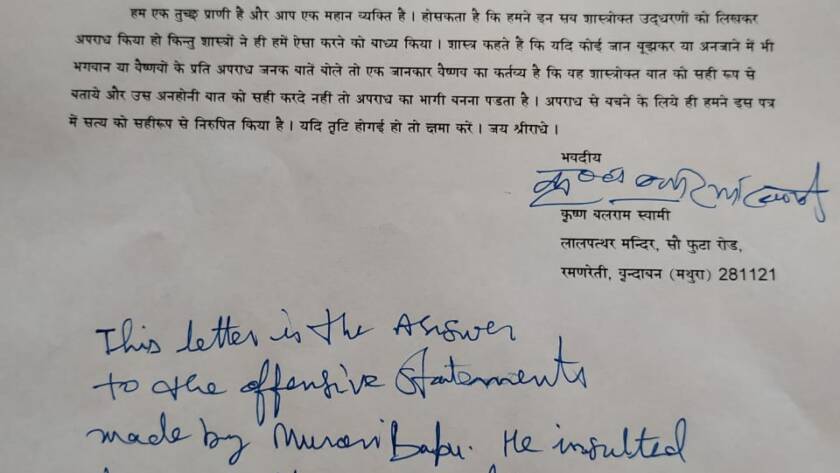 हम एक तुच्छ प्राणी है और आप एक महान व्यक्ति है । होसकता है कि हमने इन सब शास्त्रोक्त उद्धरणों को लिखकर
अपराध किया हो किन्तु शास्त्रों ने ही हमें ऐसा करने को बाध्य किया । शास्त्र कहते है कि यदि कोई जान बूझकर या अनजाने में भी
भगवान या वैष्णवों के प्रति अपराध जनक बातें बोले तो एक जानकार वैष्णव का कर्तव्य है कि वह शास्त्रोक्त बात को सही रूप से
बताये और उस अनहोनी बात को सही करदे नही तो अपराध का भागी बनना पडता है । अपराध से बचने के लिये ही हमने इस पत्र
में सत्य को सहीरूप से निरुपित किया है । यदि तृटि होगई हो तो क्षमा करें । जय श्रीराधे ।
भवदीय
कृष्ण बलराम स्वामी
लालपत्थर मन्दिर, सौ फुटा रोड,
रमणरेती, वृन्दावन (मथुरा) 281121
This letter is the Answer
to the offensive Statements
made by Murari Bapu. He insulted